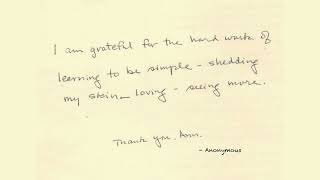 I am grateful for the hard work of
learning to be simple – shedding
my skin – loving – seeing more.
Thank you.
– Anonymous